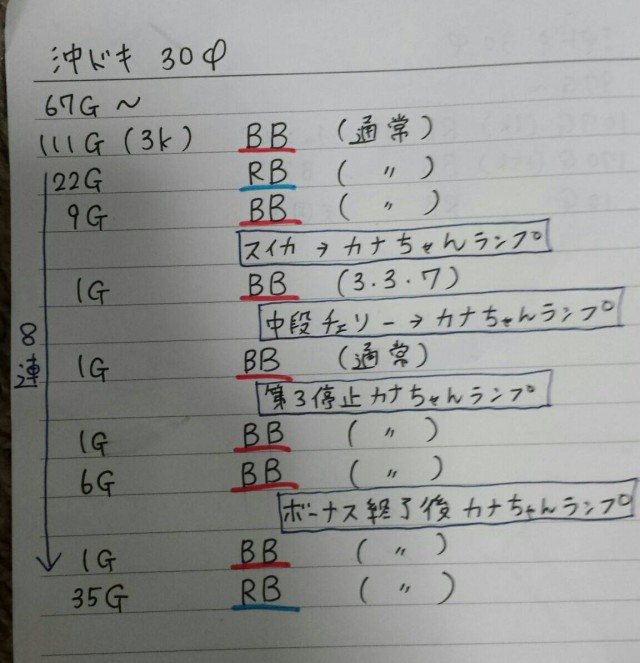 沖ドキ 30Φ
67G～
111G (3k) BB (通常)
22G RB ( 〃 )
9G BB ( 〃 )
スイカ → カナちゃんランプ
1G BB (3.3.7)
中段チェリー → カナちゃんランプ
1G BB (通常)
第3停止カナちゃんランプ
1G BB ( 〃 )
6G BB ( 〃 )
ボーナス終了後 カナちゃんランプ
1G BB ( 〃 )
35G RB ( 〃 )